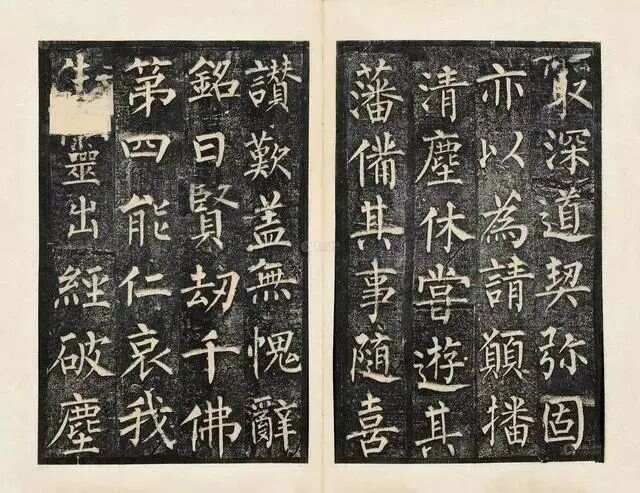 最深道契弥固
亦以為請願播
清塵休嘗遊其
藩備其事隨喜
讚歎蓋無愧辭
銘曰賢劫千佛
第四能仁哀我
生靈出經破塵